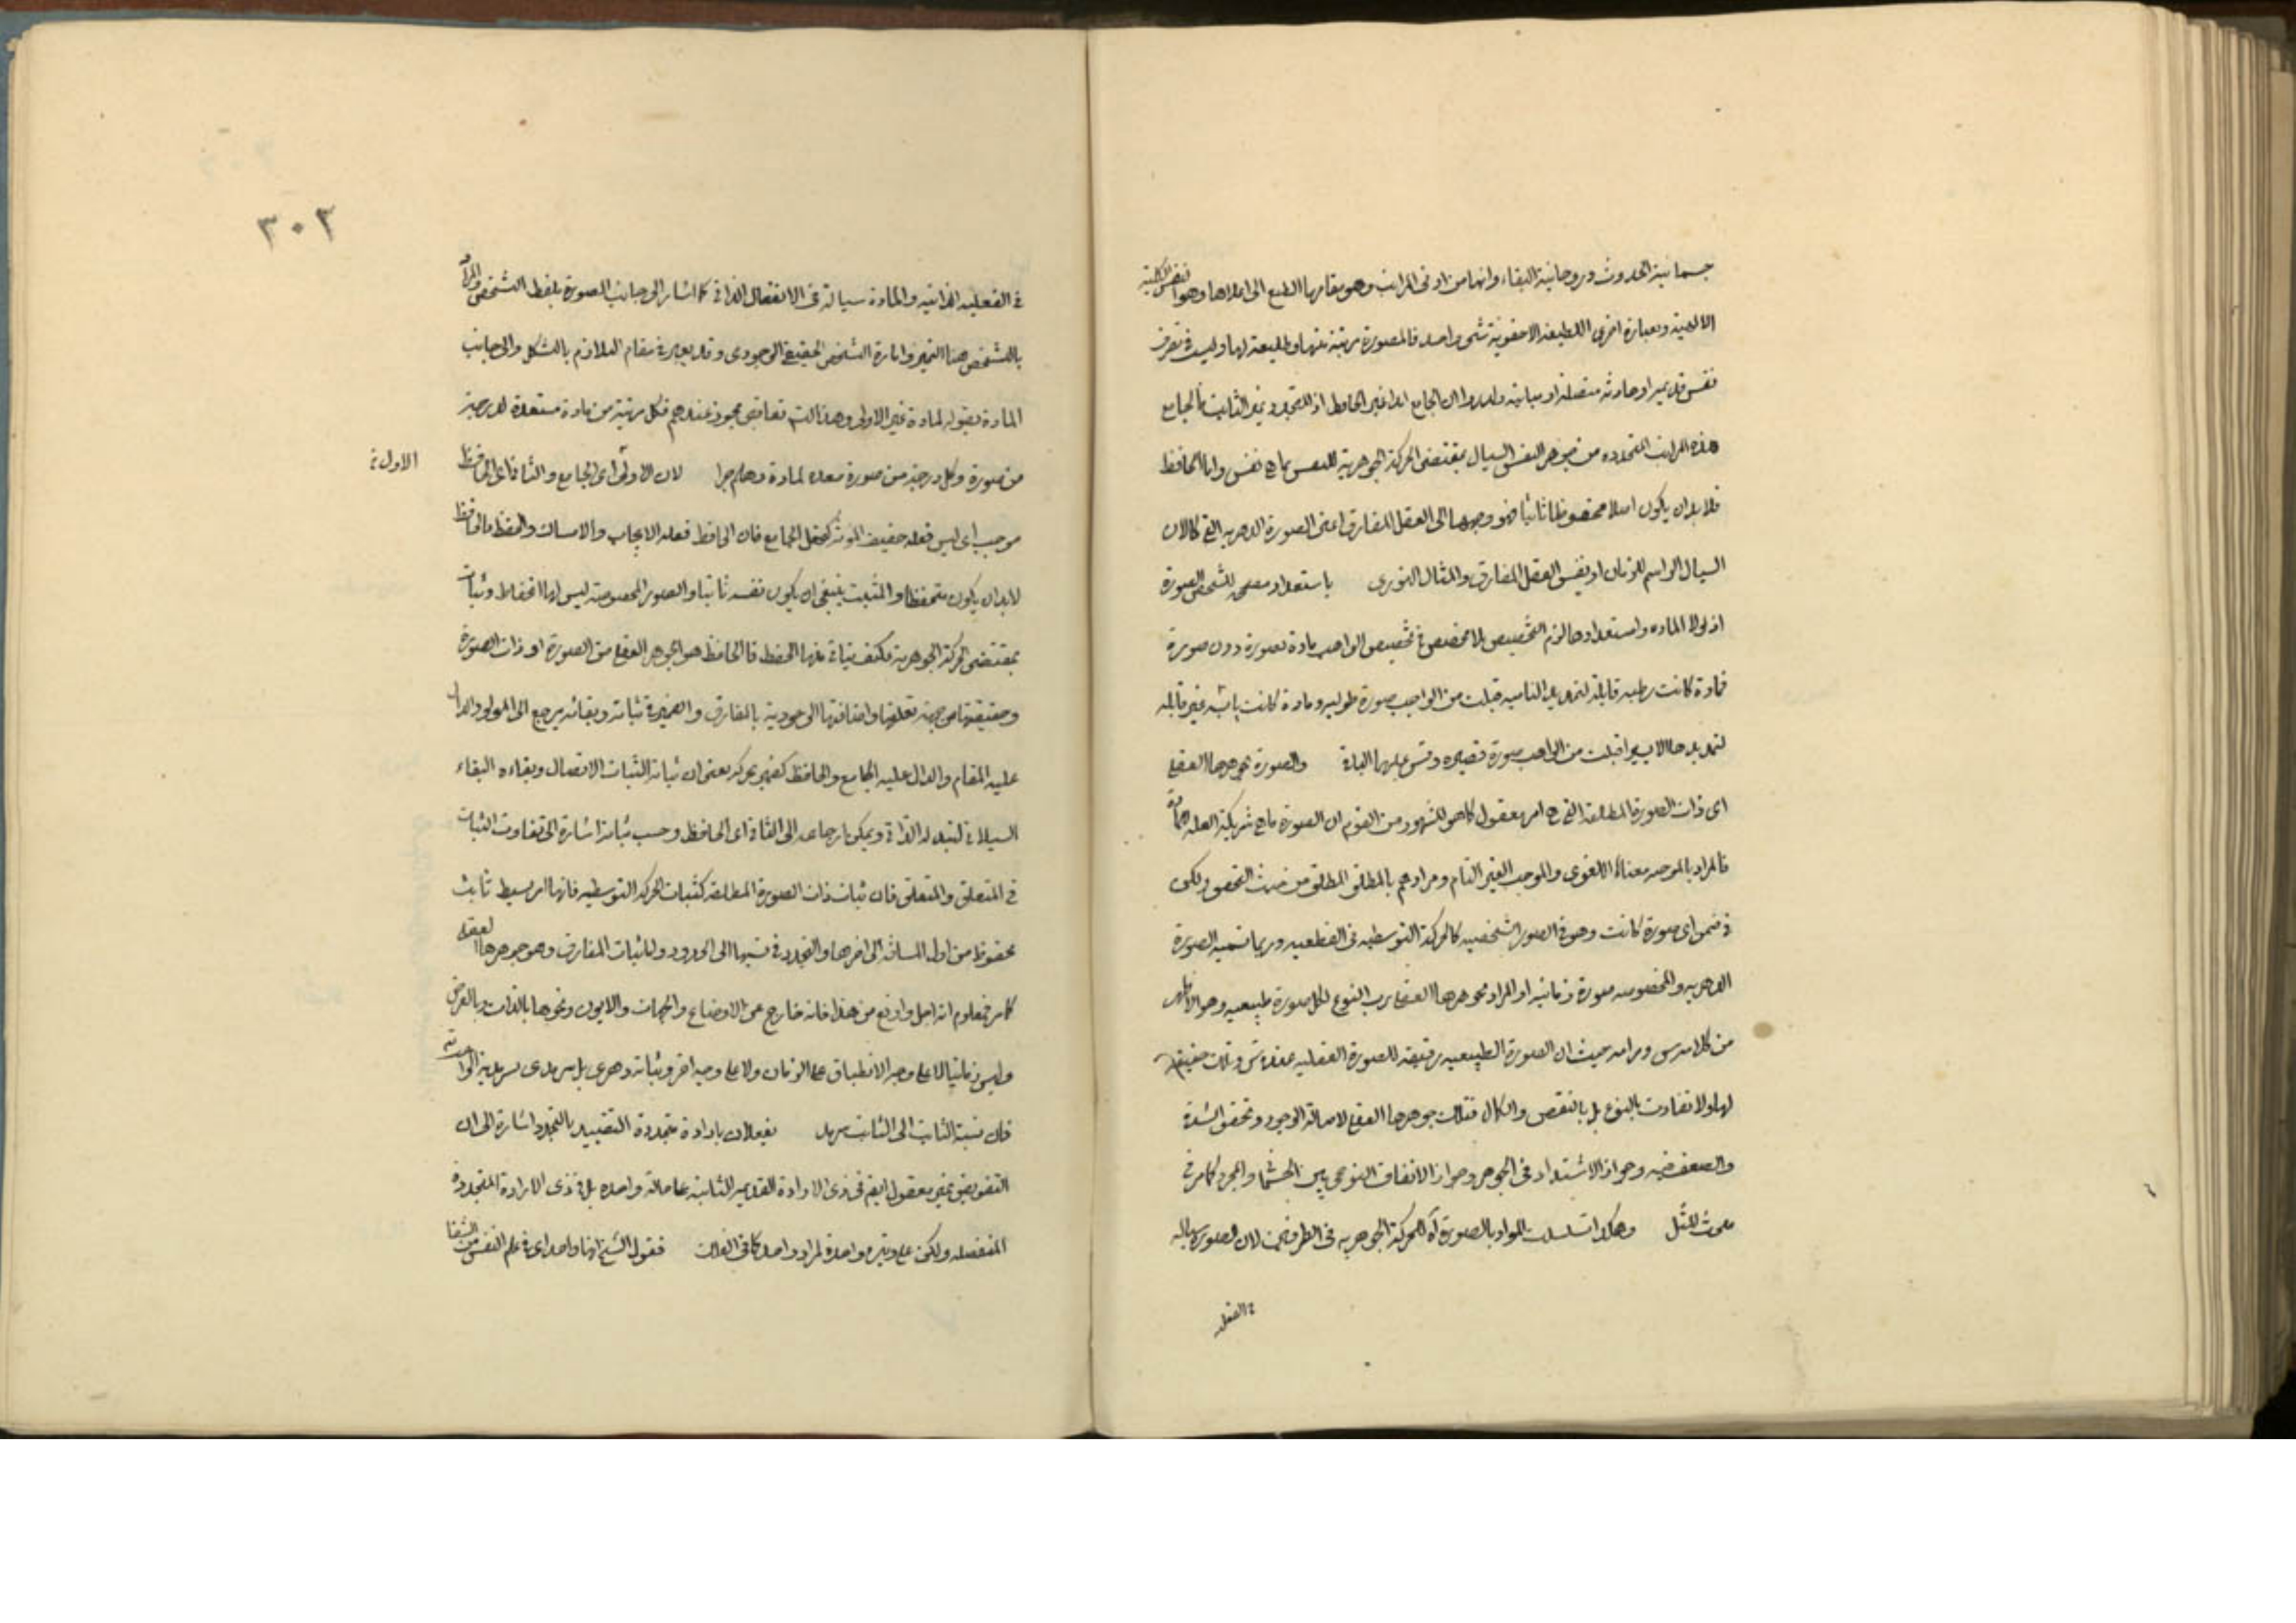 جسمانية الحدوث وروحانية البقاء وانها من ادنى المراتب وهو مقامها الطبع الى اعلاها وهو النفس الكلية
الالهية وبعبارة اخرى اللطيفة الاخفوية شىء واحد فالمصورة مرتبة منها وطليعة لها وليست
نفس قديمة او حادثة متصلة او مباينة الجامع ايضا غير الحافظ اذ المتجدد غير الثابت فالجامع
هذه المراتب المتجدده من جوهر النفس السيال بمقتضى الحركة الجوهرية للنفس بما هى نفس واما الحافظ
فلابد ان يكون اصلا محفوظا ثابتا فهو وجهها الى العقل المفارق اعنى الصورة الدهريه التى كالآن
السيال الراسم للزمان او نفس العقل المفارق والمثال النورى باستعداد للتشخص الصورة
اذ لولا الماده واستعدادها لزم التخصيص بلا مخصص فى تخصيص الواهب مادة بصورة دون صورة
فمادة كانت رطبه قابلة لتمديد الناميه قبلت من الواهب صورة طوليه ومادة كانت يابسه غير قابله
لتمديدها الا يسيرا قبلت من الواهب صورة قصيره وقس عليها الباقى والصورة بجوهرها العقلى
اى ذات الصورة المطلقة التى هى امر معقول كما هو المشهور من القوم ان الصورة ما هى شريكة العله
فالمراد بالموجبه معناه اللغوى والموجب الغير التام ومرادهم بالمطلق المطلق من حيث التحقق ولكن
فى ضمن اى صورة كانت وهو فى الصور الشخصيه كالحركة التوسطيه فى القطعيه وربما تسميه الصورة
الدهريه والمخصوصه صورة زمانيه او المراد بجوهرها العقلى رب النوع لكل صورة طبيعيه وهو الاظهر
من كلامه س ومرامه حيث ان الصورة الطبيعيه رقيقة للصورة العقليه عنده س وتلك حقيقة
لها ولا تفاوت بالنوع بل بالنقص والكمال فتلك جوهرها العقلى لاصالة الوجود وتحقق الشدة
والضعف فيه وجواز الاشتداد فى الجوهر وجواز الاتفاق النوعى بين والمجرد كما مر فى
مبحث المثل وهكذا تسلسلت المواد بالصورة آه للحركة الجوهريه فى الطرفين لان الصورة سياله
فى الفعليه
٣٠٣
فى الفعليه الذاتيه والمادة سيالة فى الانفعال الذاتى كما اشار الى جانب الصورة بلفظ التشخص والمراد
بالتشخص هنا التميز وامارة التشخص الحقيقى الوجودى وقد يعبر فى مقام التلازم بالشكل والى جانب
المادة بقوله لمادة غير الاولى وهذا التعاقب مجوز عندهم فكل مرتبة من مادة مستعدة لدرجة
من صورة وكل درجة من صورة معده لمادة وهلم جرا لان الاولى اى الجامع والثانى اى الحافظ
الاول
موجب اى ليس فعله حقيقة المؤثر كفعل الجامع فان الحافظ فعله الايجاب والامساك والحفظ فالحافظ
لابد ان يكون متحفظا والمثبت ينبغى ان يكون نفسه ثابتا والصور المخصوصة ليس لها انحفاظ وثبات
بمقتضى الحركة الجوهرية فكيف يتاتى منها الحفظ فالحافظ هو الجوهر العقلى من الصورة او ذات الصورة
وحقيقتها من جهة تعلقها واضافتها الوجودية بالمفارق والضمير فى ثباته وبقائه يرجع الى المولود
عليه المقام والدال عليه الجامع والحافظ كضمير يحركه يعنى ان ثباته الثبات الاتصال وبقاءه البقاء
السيلانى لتبدله الذاتى ويمكن ارجاعه الى الثانى اى الحافظ وحسب ثباته اشارة الى تفاوت الثبات
فى المتعلق والمتعلق فان ثبات ذات الصورة المطلقة كثبات الحركة التوسطيه فانها امر بسيط ثابت
محفوظ من اول المسافة الى اخرها والتجدد فى نسبها الى الحدود والثبات المفارق وهو جوهرها العقلى
كما مر فمعلوم انه اجل وارفع من هذا فانه خارج عن الاوضاع والجهات والايون ونحوها بالذات وبالعرض
وليس زمانيا لا على وجه الانطباق على الزمان ولا على وجه اخر وثباته دهرى بل سرمدى بسرمدية
فان نسبة الثابت الى الثابت سرمد يفعلان بارادة متجددة التقييد بالتجدد اشارة الى ان
التفويض غير معقول ايضا فى ذى الارادة القديمة الثابتة على حالة واحده بل فى ذى الارادة المتجددة
المنفصله ولكن على وتيره واحدة لمراد واحد كما فى الفلك فقول الشيخ انها واحد اى فى علم النفس من الشفا